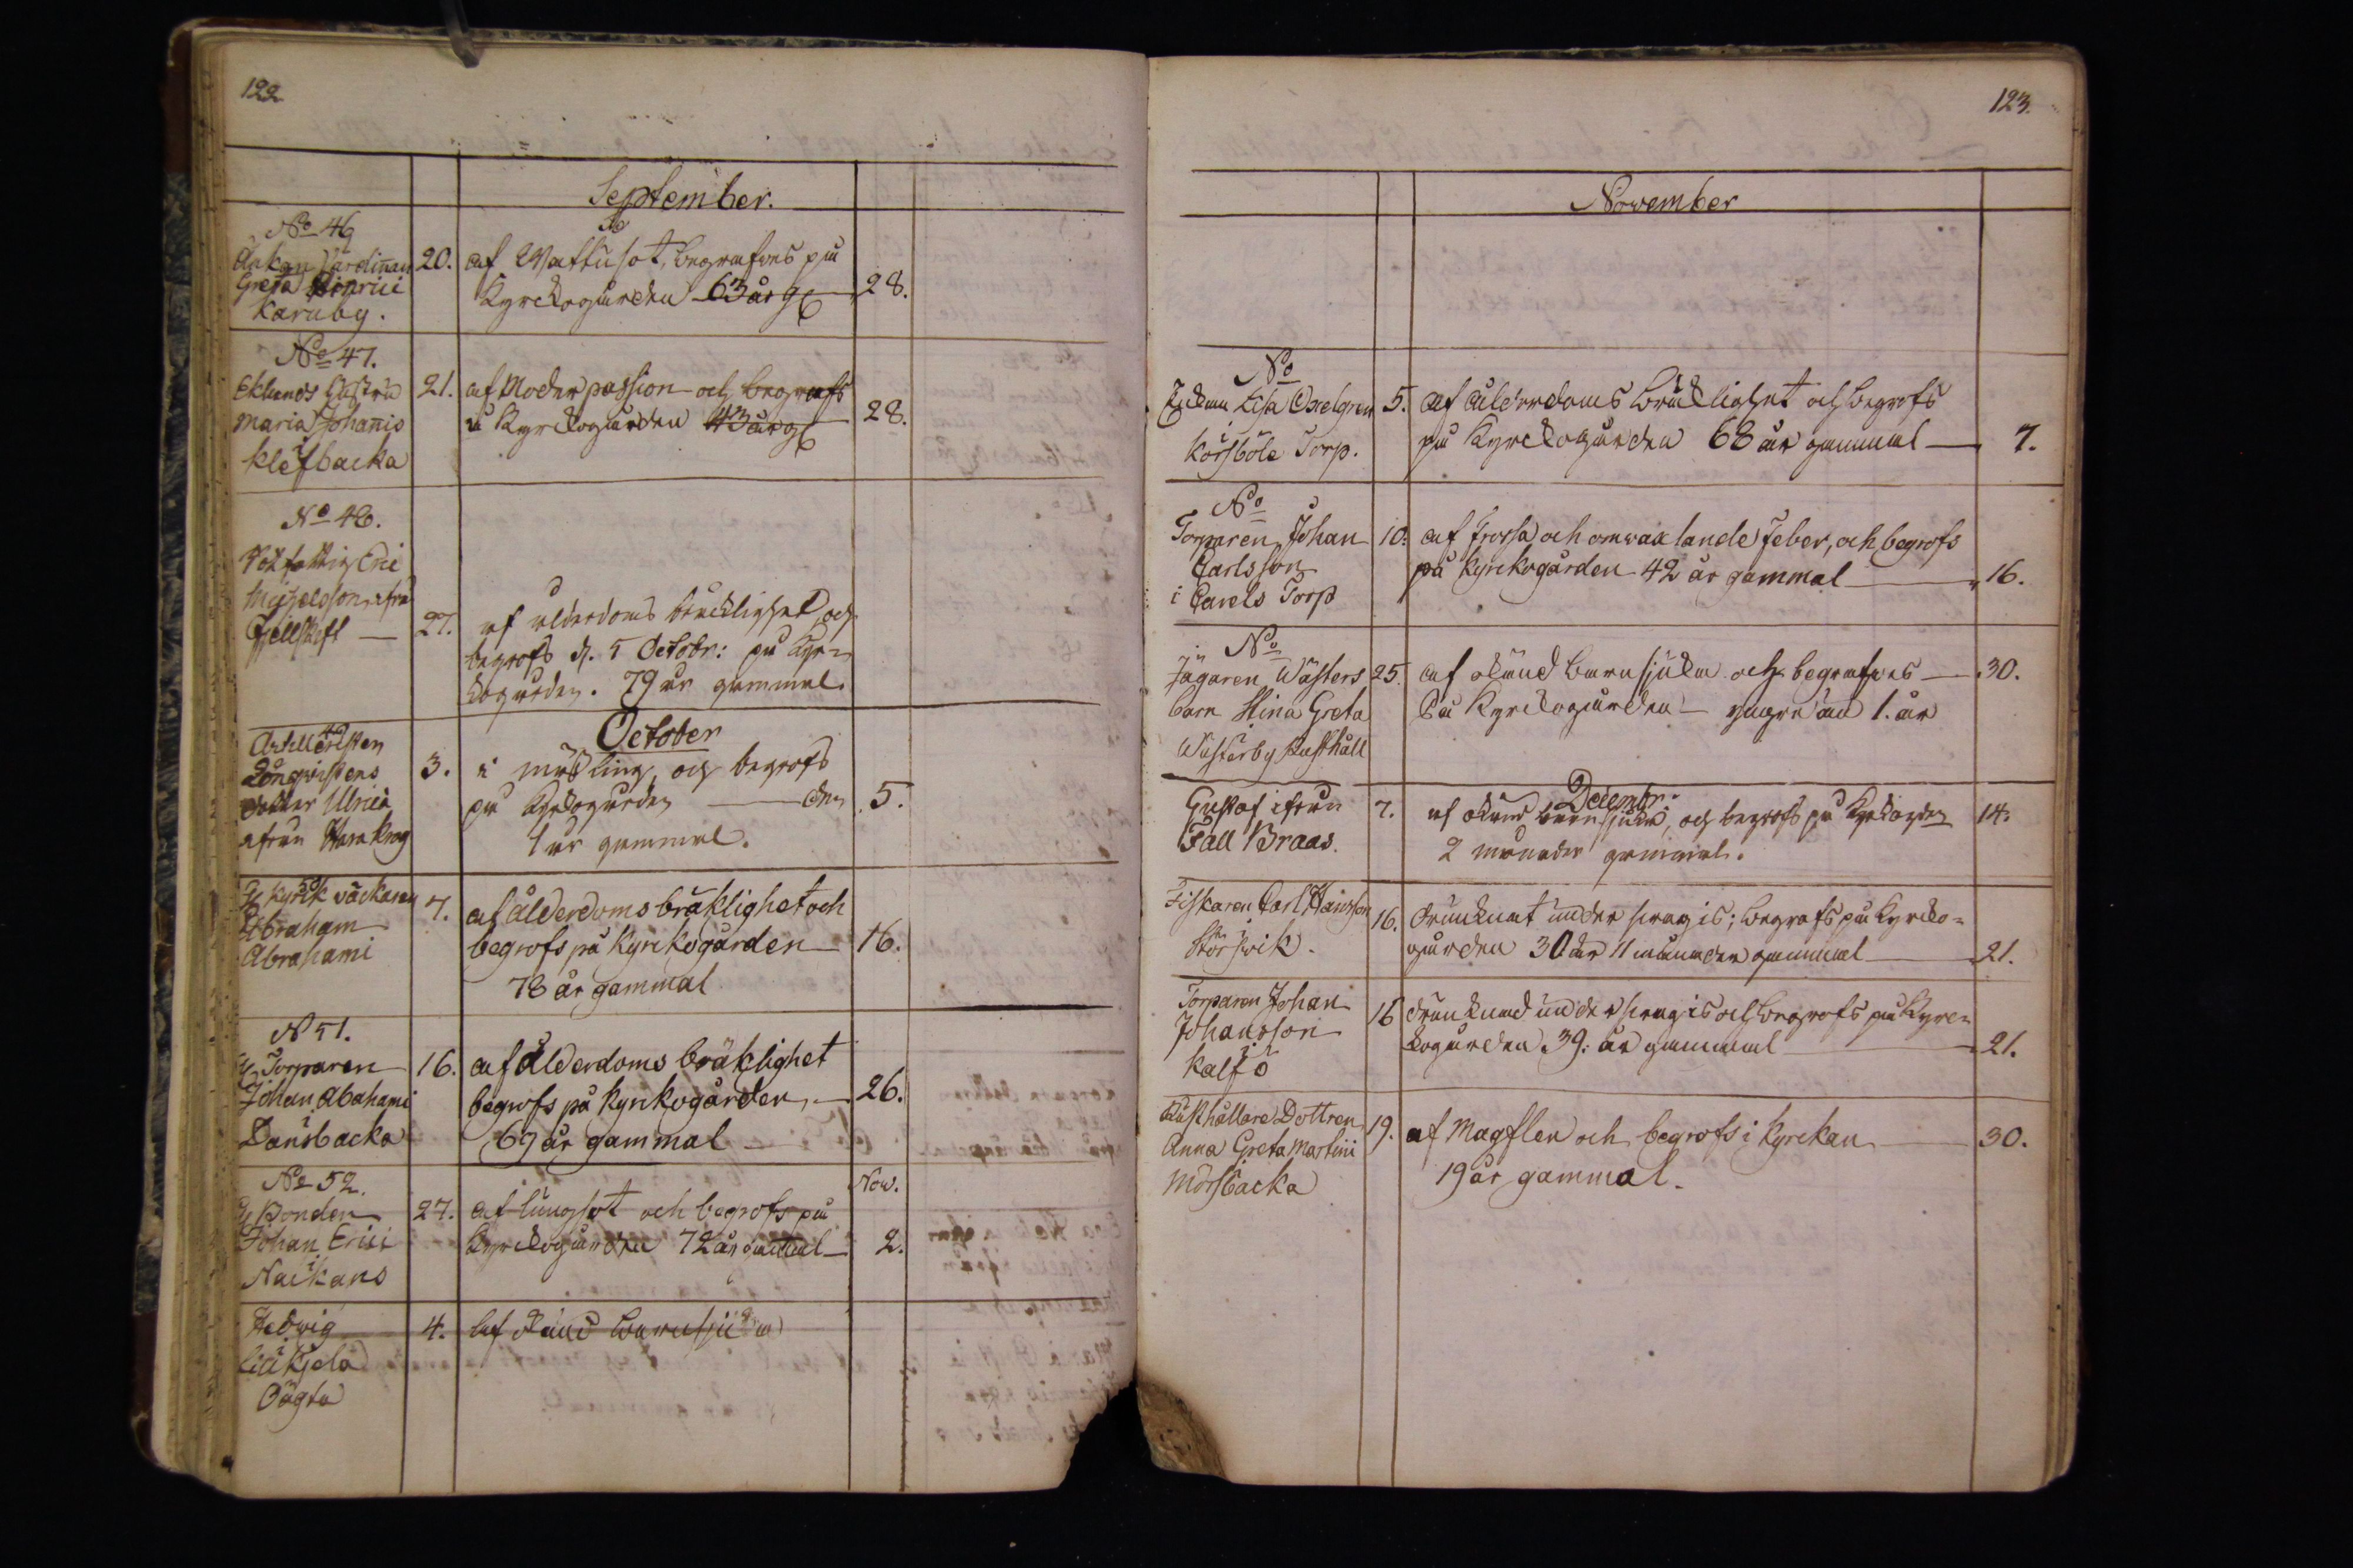 122
September.
No 46
Enkan Jardinan
Greta Hinrici
Karuby.
20.
af Wattusot, begrafves på
Kyrckogården 63 år g
28.
No 47.
Eklunds Hustru
Maria Johanis
Klefbacka
21.
af Moderpassion och begrafs
å Kyrckogården 43 år g
28.
No 48.
Eric
Michelsson ifrå
Fjellskift
27.
af ålderdoms bräcklighet och
begrofs d. 5 Octobr: på Kyr-
kogården. 79 år gammal
October
49
Artilleristen
Longqvistens
dotter Ulrica
ifrån Harakrog
3.
i mässling, och begrofs
på Kyrkogården den
5.
1 år gammal.
50
G Kyrk väckaren
Abraham
Abrahami
7.
af ålderdoms bräklighet och
begrofs på Kyrckogården
16.
78 år gammal
N 51.
G Torparen
Johan Abahami
Dansbacka
16.
af ålderdoms bräklighet
begrofs på Kyrckogården,
26.
69 år gammal
No 52.
G Bonden
Johan Erici
Nackans
27.
af lungsot och begrofs på
Kyrckogården 72 år gammal
Nov.
2.
Hedwig
Liakjela
Bägta
4.
af okänd barnsjuka
123.
November
No
Enkan Lisa Oxelgren
Korsböle Torp.
5.
af ålderdoms bräcklighet och begrofs
på Kyrckogården 68 år gammal
7.
No
Torparen Johan
Carlsson
i Carels Torp
10.
af Frossa och omvaxlande Feber, och begrofs
på Kyrckogården 42 år gammal
16.
No
Jägaren Wästers
barn Stina Greta
Wästerby Rusthåll
25.
af okänd barnsjuka och begrafves
På Kyrckogården yngre än 1. år
30.
Decembr:
Gustaf ifrån
Fall Braas.
7.
af okänd barnsjuka, och begrofs på Kyrkogården
2 månader gammal.
14.
Fiskaren Carl Hansson
Störsvik.
16.
drunknat under svag is; begrafs på Kyrcko-
gården 30 år 11 månader gammal
21.
Torparen Johan
Johansson
Kalfö
16
drunknad under svag is och begrofs på Kyrc-
kogården 39: år gammal
21.
Rusthållare Dottren
Anna Greta Martini
Morsbacka
19.
af Magflen och begrofs i Kyrckan
19 år gammal.
30.